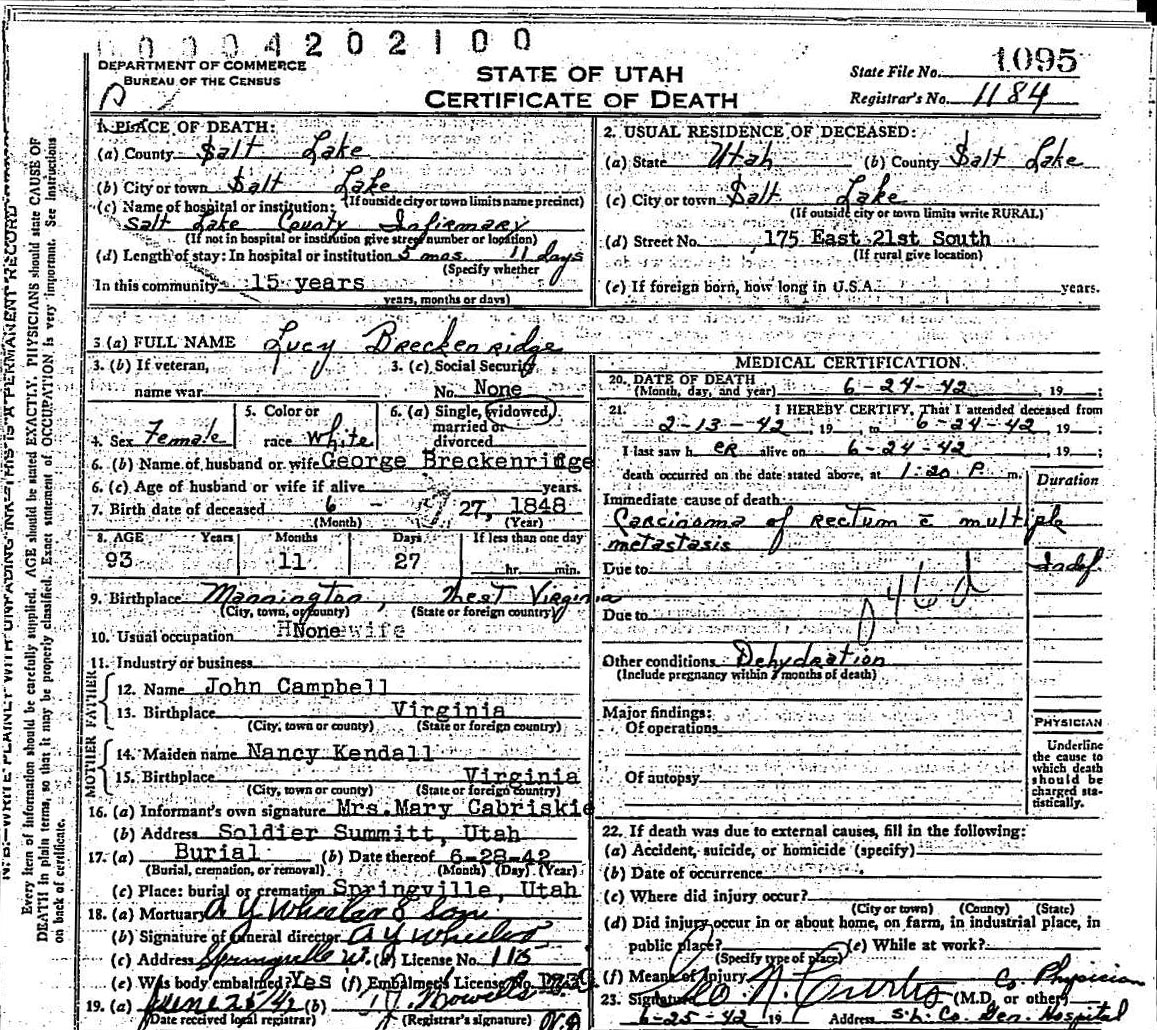 0 0 0 0 4 2 0 2 1 0 0
DEPARTMENT OF COMMERCE
BUREAU OF THE CENSUS
STATE OF UTAH
CERTIFICATE OF DEATH
State File No. 1095
Registrar's No. 1184
N.B.—WRITE PLAINLY WITH UNFADING INK—THIS IS A PERMANENT RECORD
Every item of information should be carefully supplied. AGE should be stated EXACTLY. PHYSICIANS should state CAUSE OF
DEATH in plain terms, so that it may be properly classified. Exact statement of OCCUPATION is very important. See instructions
on back of certificate.
1. PLACE OF DEATH:
(a) County Salt Lake
(b) City or town Salt Lake
(If outside city or town limits name precinct)
(c) Name of hospital or institution:
Salt Lake County Infirmary
(If not in hospital or institution give street number or location)
(d) Length of stay: In hospital or institution 5 mos. 11 days
(Specify whether
In this community 15 years
years, months or days)
2. USUAL RESIDENCE OF DECEASED:
(a) State Utah (b) County Salt Lake
(c) City or town Salt Lake
(If outside city or town limits write RURAL)
(d) Street No. 175 East 21st South
(If rural give location)
(e) If foreign born, how long in U.S.A. years.
3 (a) FULL NAME Lucy Breckenridge
3. (b) If veteran,
name war
3. (c) Social Security
No. None
4. Sex Female
5. Color or
race White
6. (a) Single, widowed,
married or
divorced
6. (b) Name of husband or wife George Breckenridge
6. (c) Age of husband or wife if alive years.
7. Birth date of deceased 6 - 27, 1848
(Month) (Year)
8. AGE Years Months Days If less than one day
93 11 27 hr. min.
9. Birthplace Mannington, West Virginia
(City, town, or county) (State or foreign country)
10. Usual occupation None
11. Industry or business
FATHER
12. Name John Campbell
13. Birthplace Virginia
(City, town or county) (State or foreign country)
MOTHER
14. Maiden name Nancy Kendall
15. Birthplace Virginia
(City, town or county) (State or foreign country)
16. (a) Informant's own signature Mrs. Mary Cabriskie
(b) Address Soldier Summitt, Utah
17. (a) Burial (b) Date thereof 6-28-42
(Burial, cremation, or removal) (Month) (Day) (Year)
(c) Place: burial or cremation Springville, Utah
18. (a) Mortuary A Y Wheeler & Son
(b) Signature of funeral director A Y Wheeler
(c) Address Springville Ut. (d) License No. 115
(e) Was body embalmed? Yes (f) Embalmer's License No.
19. (a) June 25/42 (b)
(Date received local registrar) (Registrar's signature)
MEDICAL CERTIFICATION
20. DATE OF DEATH 6-24-42, 19 ;
(Month, day, and year)
21. I HEREBY CERTIFY, That I attended deceased from
2-13-42, 19 , to 6-24-42, 19 ;
I last saw h er alive on 6-24-42, 19 ;
death occurred on the date stated above, at 1:20 P. m.
Duration
Immediate cause of death
Carcinoma of Rectum c̄ multiple
metastasis
Due to Indef
Due to
Other conditions Dehydration
(Include pregnancy within 3 months of death)
Major findings:
Of operations
Of autopsy
PHYSICIAN
Underline
the cause to
which death
should be
charged sta-
tistically.
22. If death was due to external causes, fill in the following:
(a) Accident, suicide, or homicide (specify)
(b) Date of occurrence
(c) Where did injury occur?
(City or town) (County) (State)
(d) Did injury occur in or about home, on farm, in industrial place, in
public place? (e) While at work?
(Specify type of place)
(f) Means of Injury Co. Physician
23. Signature N. Curtis (M.D. or other)
6-25-42 19 Address S.L. Co. Gen. Hospital